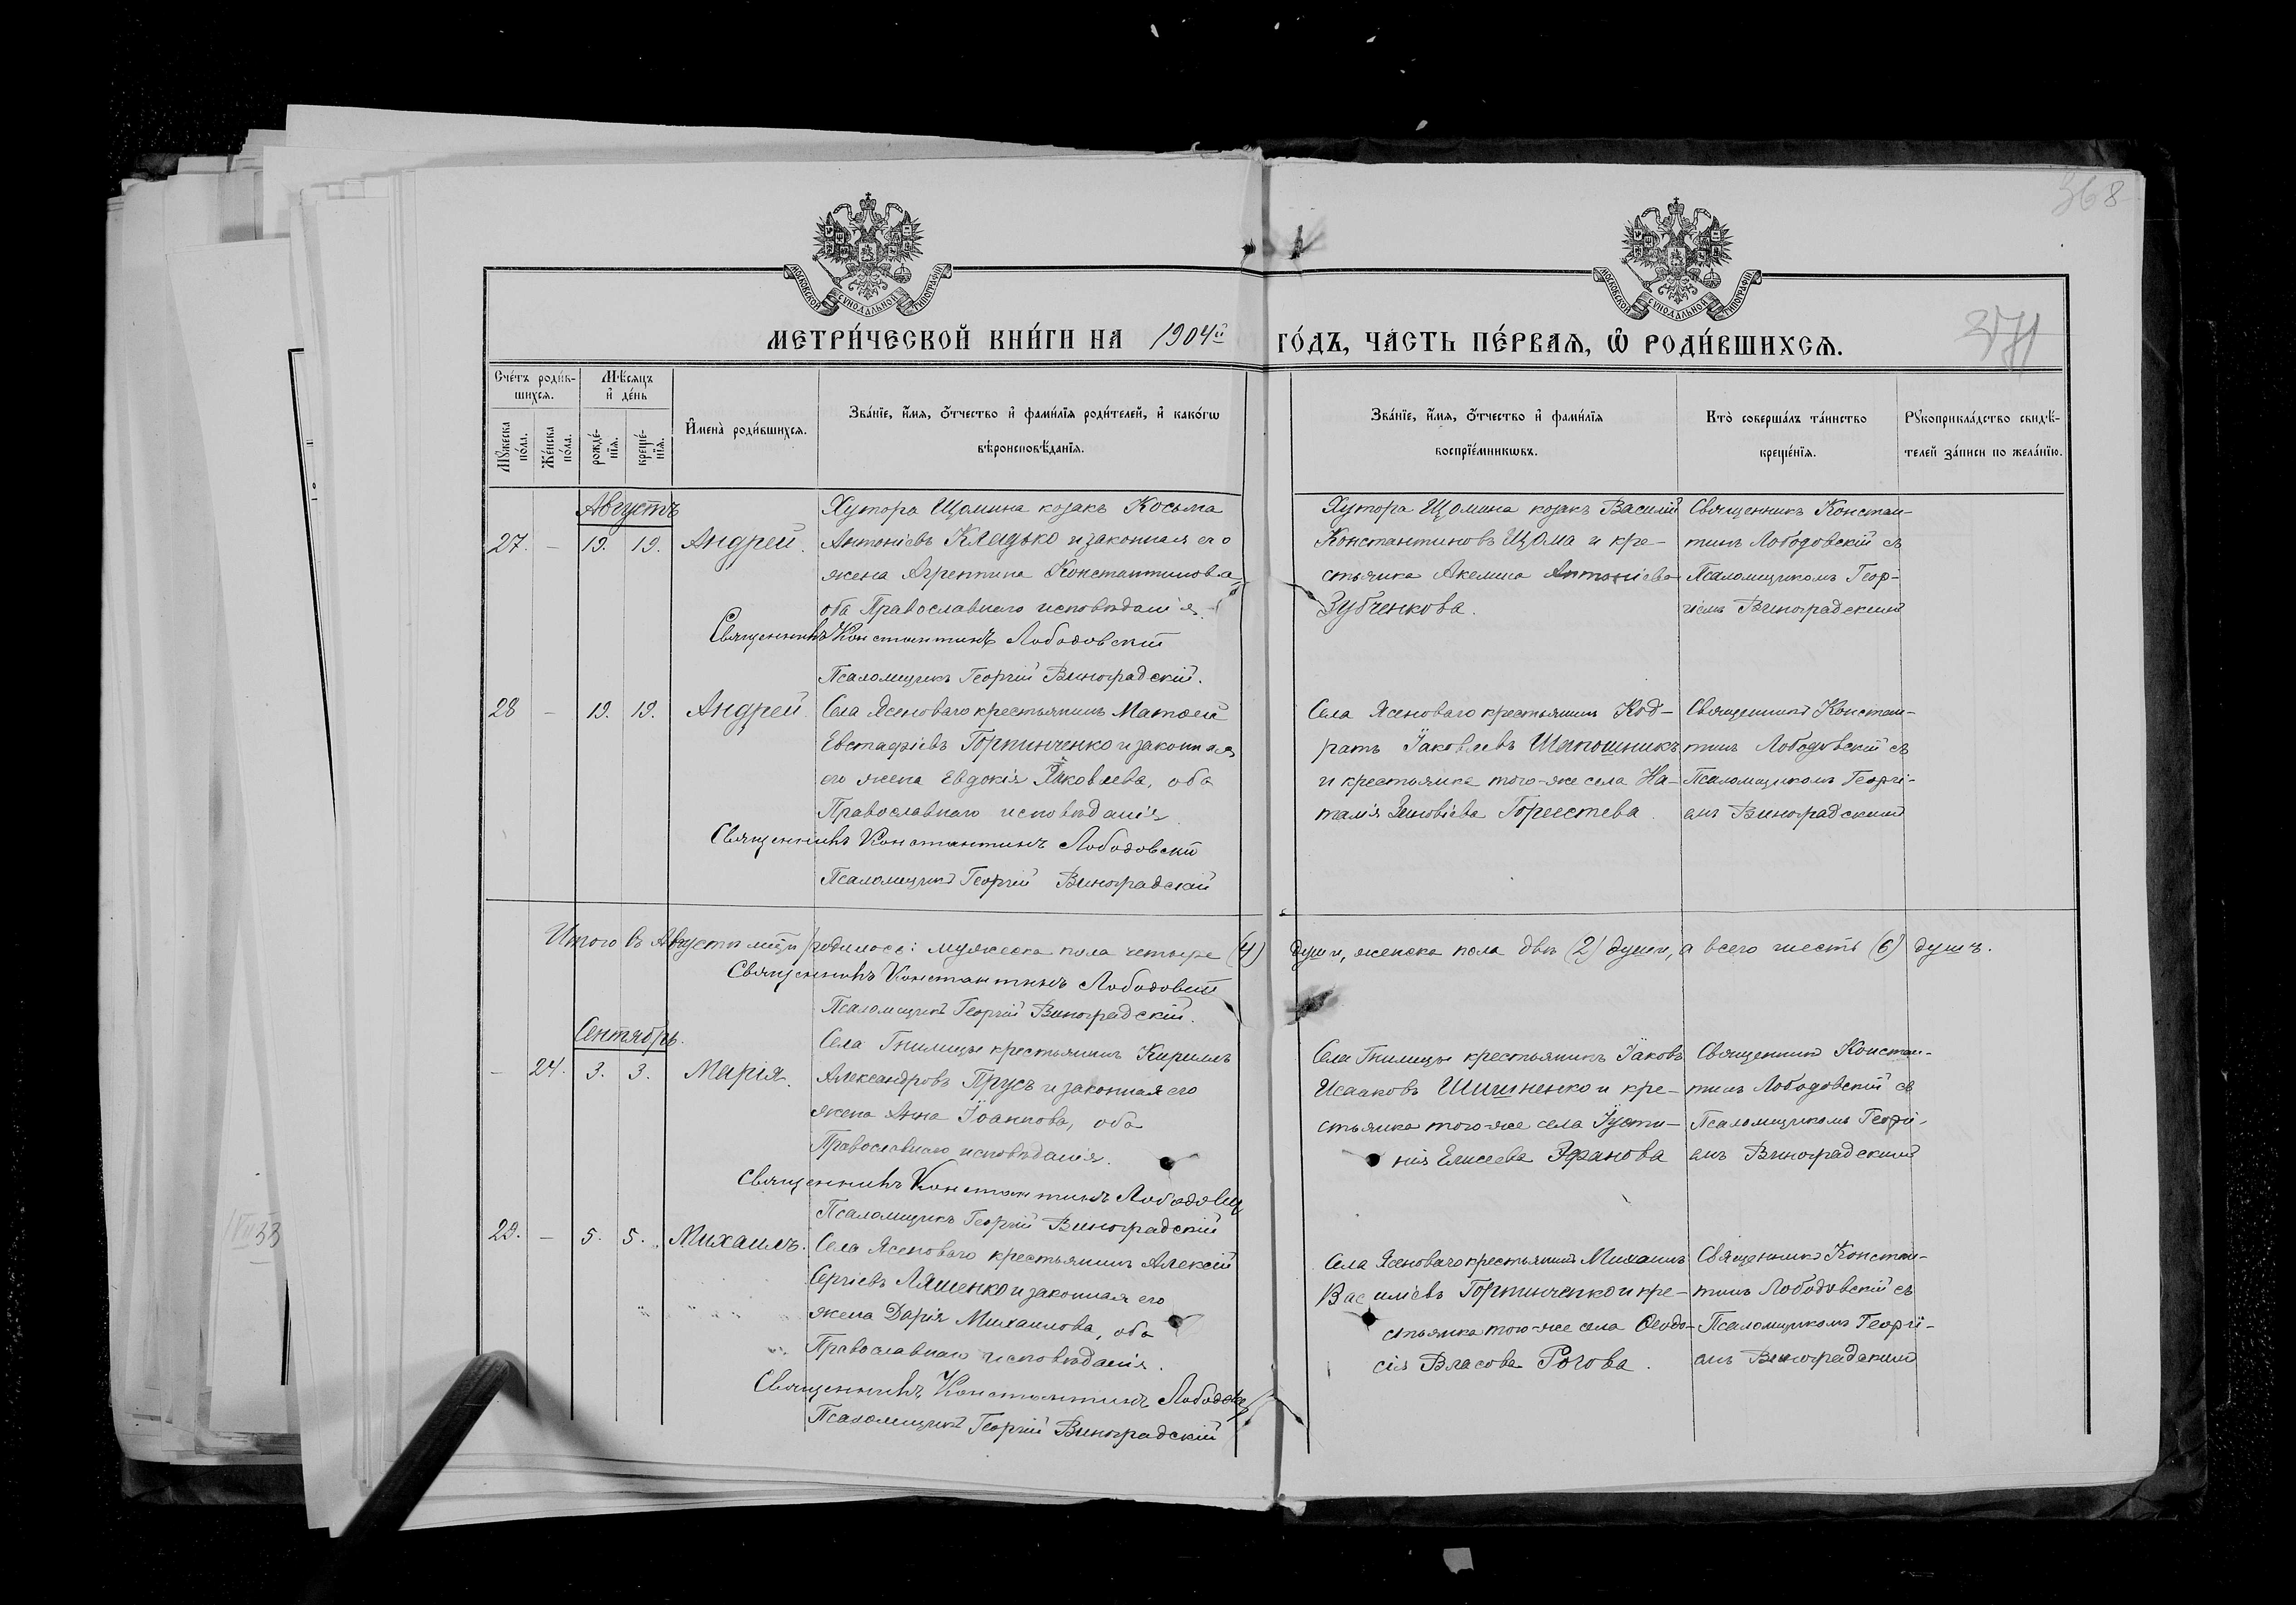 368
МОСКОВСКОЙ СѴНОДАЛЬНОЙ ТИПОГРАФІИ
МОСКОВСКОЙ СѴНОДАЛЬНОЙ ТИПОГРАФІИ
МЕТРИ́ЧЕСКОЙ КНИ́ГИ НА 1904й ГО́ДЪ, ЧА́СТЬ ПЕ́РВАѦ, Ѡ҆ РОДИ́ВШИХСѦ.
Сче́тъ роди́в-
шихсѧ.
Мꙋ́жеска по́ла.
Же́нска по́ла.
Мѣ́сѧцъ
и҆ де́нь
рожде́-
нїѧ.
креще́-
нїѧ.
И҆мена̀ роди́вшихсѧ.
Зва́нїе, и҆́мѧ, ѻ҆́тчество и҆ фами́лїѧ роди́телей, и҆ како́гѡ
вѣроисповѣ́данїѧ.
Зва́нїе, и҆́мѧ, ѻ҆́тчество и҆ фами́лїѧ
воспрїе́мникѡвъ.
Кто̀ соверша́лъ та́инство
креще́нїѧ.
Рꙋкоприкла́дство свидѣ́-
телей за́писи по жела́нїю.
Августъ
27. – 19. 19. Андрей.
Хутора Щомина козакъ Косьма
Антоніевъ Кладько и законная его
жена Агрепина Константинова,
оба Православнаго исповѣданія.
Священникъ Константинъ Лободовскій
Псаломщикъ Георгій Виноградскій.
Хутора Щомина козакъ Василій
Константиновъ Щома и кре-
стьянка Акелина Антоніева
Зубченкова.
Священникъ Констан-
тинъ Лободовскій съ
Псаломщикомъ Геор-
гіемъ Виноградскимъ
28 – 19. 19. Андрей
Села Ясеноваго крестьянинъ Матѳей
Евстафіевъ Горпинченко и законная
его жена Евдокія Яковлева, оба
Православнаго исповѣданія.
Священникъ Константинъ Лободовскій
Псаломщикъ Георгій Виноградскій
Села Ясеноваго крестьянинъ Код-
ратъ Іаковлевъ Шапошникъ
и крестьянка того-же села На-
талія Зиновіева
Священникъ Констан-
тинъ Лободовскій съ
Псаломщикомъ Георгі-
емъ Виноградскимъ
Итого въ Августѣ м-цѣ родилось: мужеска пола четыре (4) души, женска пола двѣ (2) души, а всего шесть (6) душъ.
Священникъ Константинъ Лободовскій
Псаломщикъ Георгій Виноградскій.
Сентябрь.
– 24. 3. 3. Марія.
Села Гнилицы крестьянинъ Кирилъ
Александровъ Прусъ и законная его
жена Анна Іоаннова, оба
Православнаго исповѣданія.
Священникъ Константинъ
Псаломщикъ Георгій Виноградскій
Села Гнилицы крестьянинъ Іаковъ
Исааковъ Шишненко и кре-
стьянка того-же села Іусти-
нія Елисеева
Священникъ Констан-
тинъ Лободовскій съ
Псаломщикомъ Георгі-
емъ Виноградскимъ
29. – 5. 5. Михаилъ.
Села Ясеноваго крестьянинъ Алексій
Сергіевъ Ляшенко и законная его
жена Дарія Михаилова, оба
Православнаго исповѣданія.
Священникъ Константинъ
Псаломщикъ Георгій Виноградскій
Села Ясеноваго крестьянинъ Михаилъ
Василіевъ Горпинченко и кре-
стьянка того-же села Ѳеодо-
сія Власова Рогова.
Священникъ Констан-
тинъ Лободовскій съ
Псаломщикомъ Георгі-
емъ Виноградскимъ